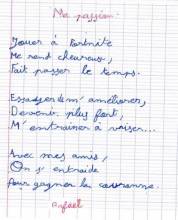 Ma passion
Jouer à Fortnite
Me rend heureux,
Fait passer le temps.
Essayer de m'améliorer,
Devenir plus fort,
M'entraîner à viser...
Avec mes amis,
On s'entraide
Pour gagner la couronne.